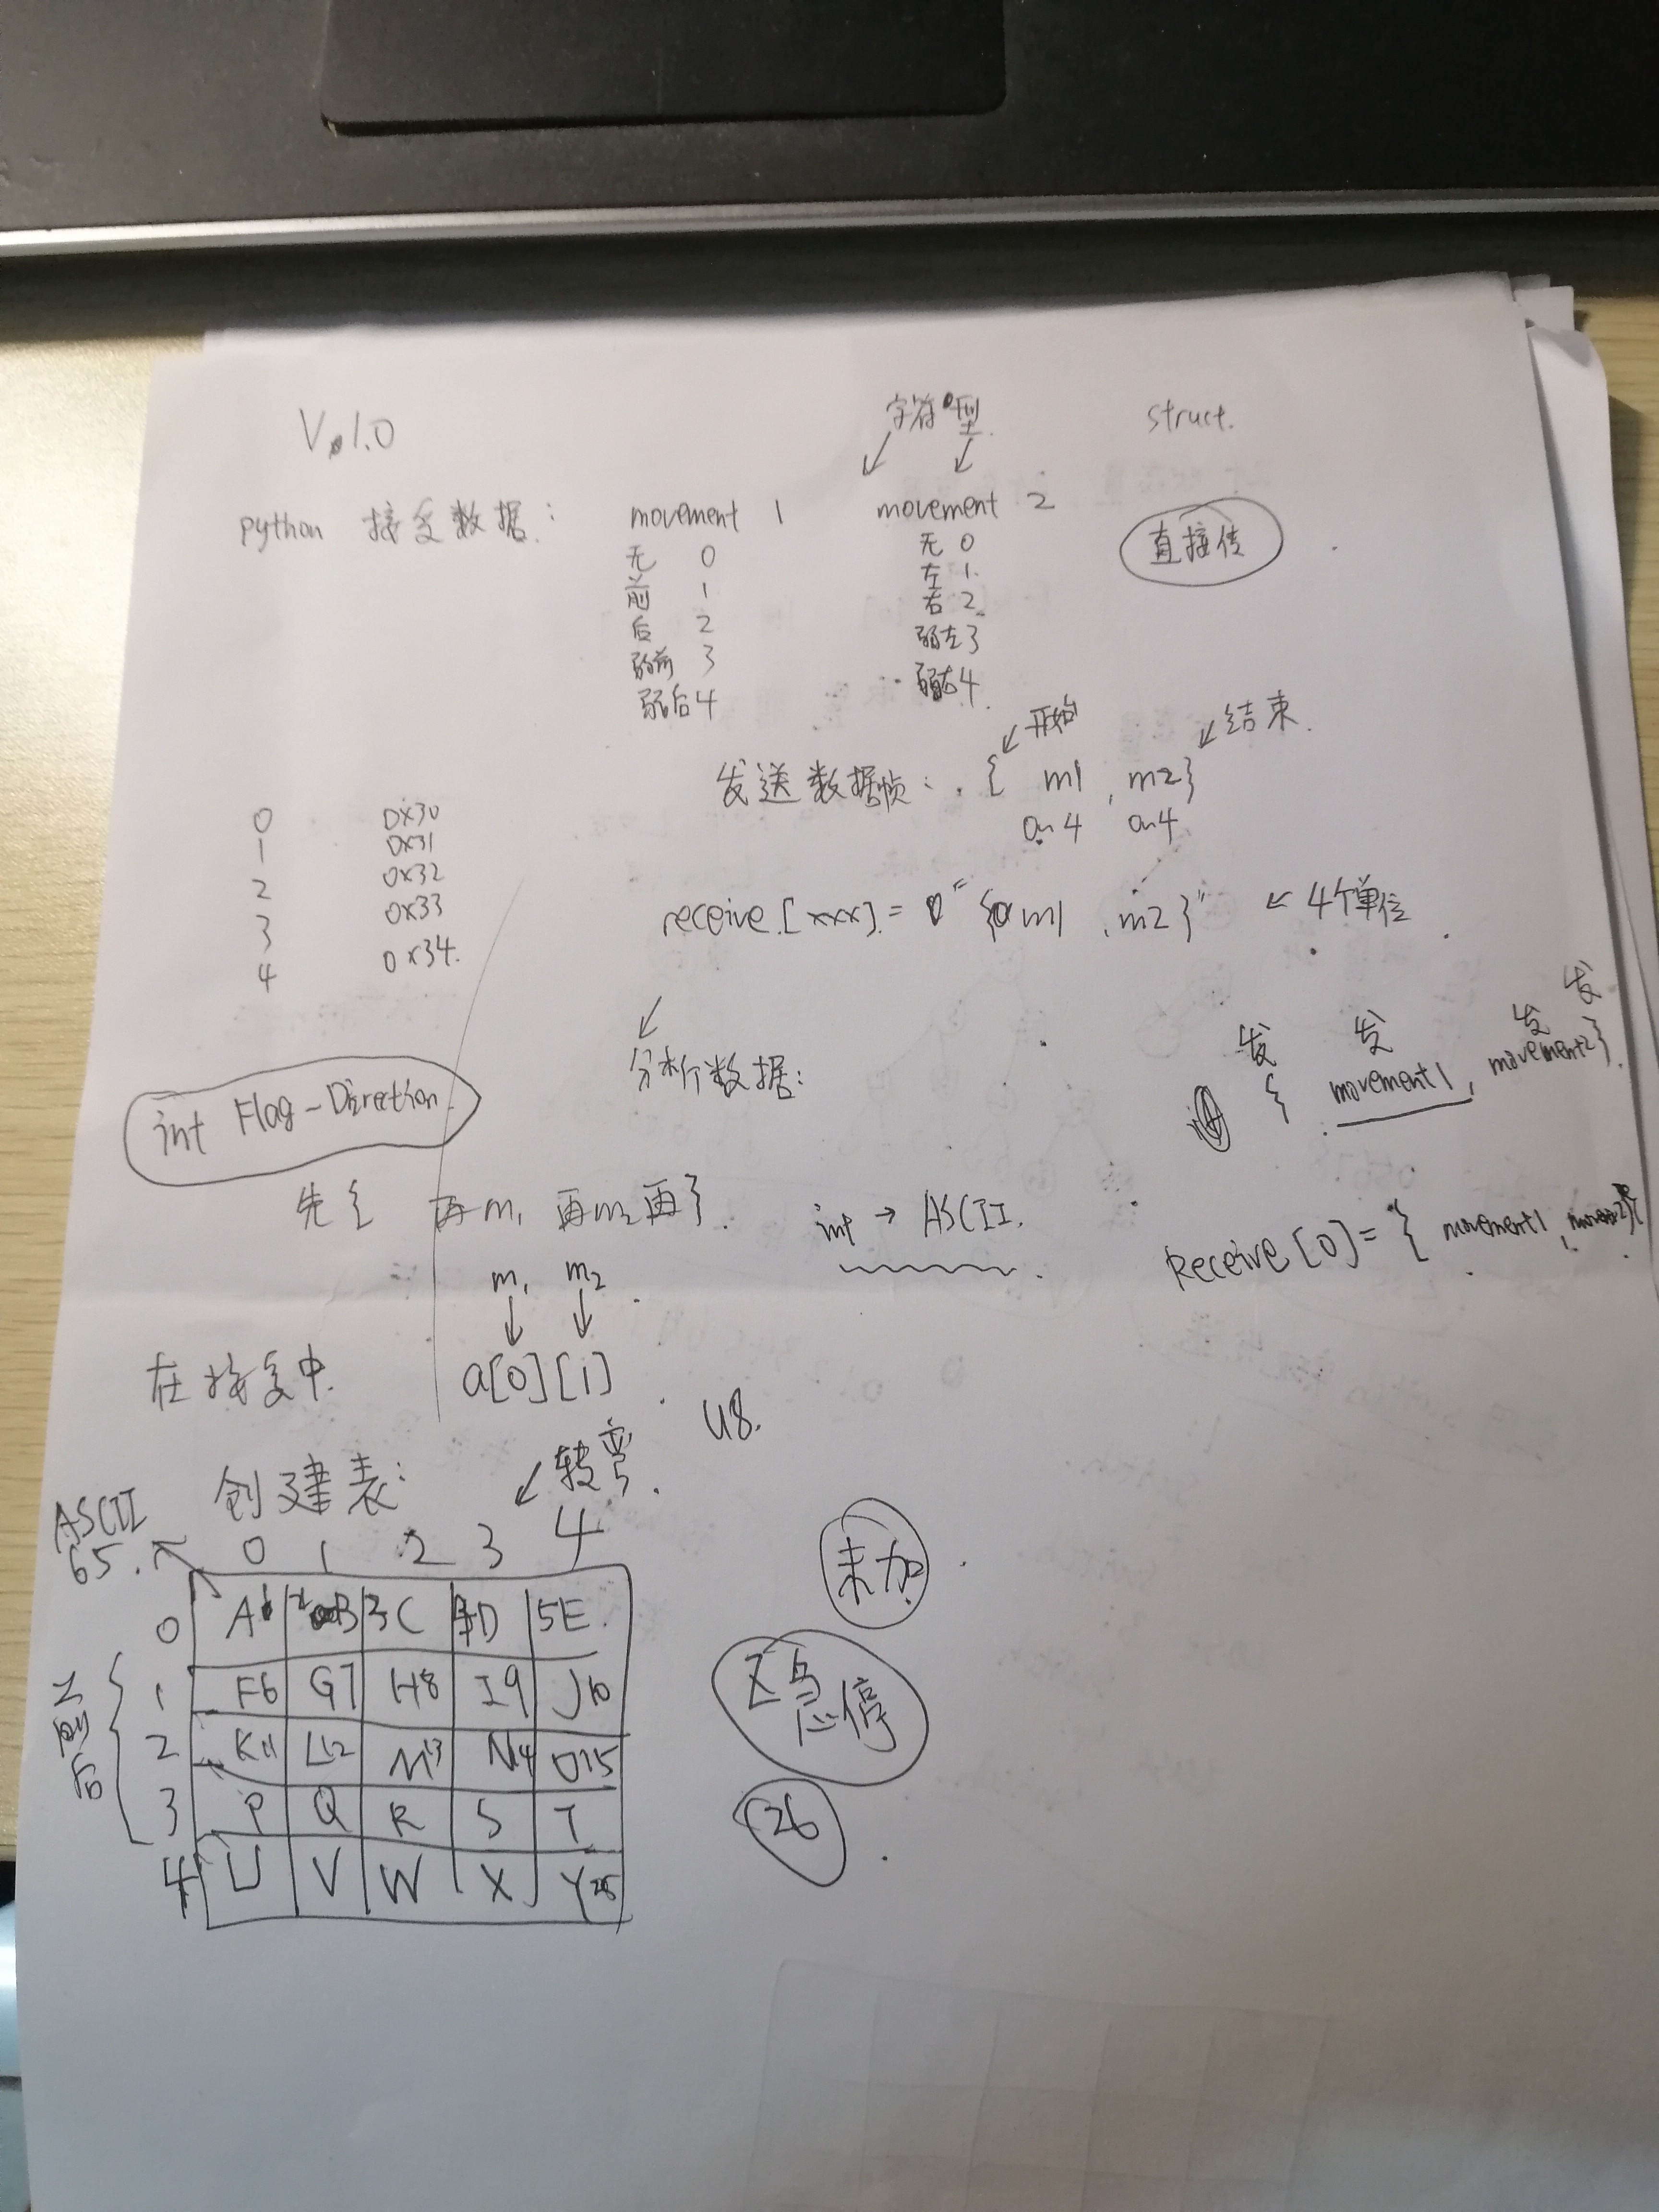 V.1.0
字符型
struct.
python 接受数据: movement 1 movement 2
直接传
无 0 无 0
前 1 左 1
后 2 右 2
弱前 3 弱左 3
弱后 4 弱右 4
开始 结束
发送数据帧: { m1 , m2 }
0~4 0~4
0 0x30
1 0x31
2 0x32
3 0x33
4 0x34
receive[xxx] = "{ m1 , m2 }" ← 4个单位
分析数据:
发 发 发 发
{ movement1 , movement2 }
int Flag-Direction
先 { 再 m1 再 m2 再 }
int → ASCII.
Receive[0] = { movement1 ,
m1 m2
在接受中 a[0][1]
U8.
创建表:
转弯
ASCII
65.
0 1 2 3 4
0 A1 2B 3C 4D 5E
1 F6 G7 H8 I9 J10
2 K11 L12 M13 N14 O15
3 P Q R S T
4 U V W X Y25
前后
未加
Z 急停
26